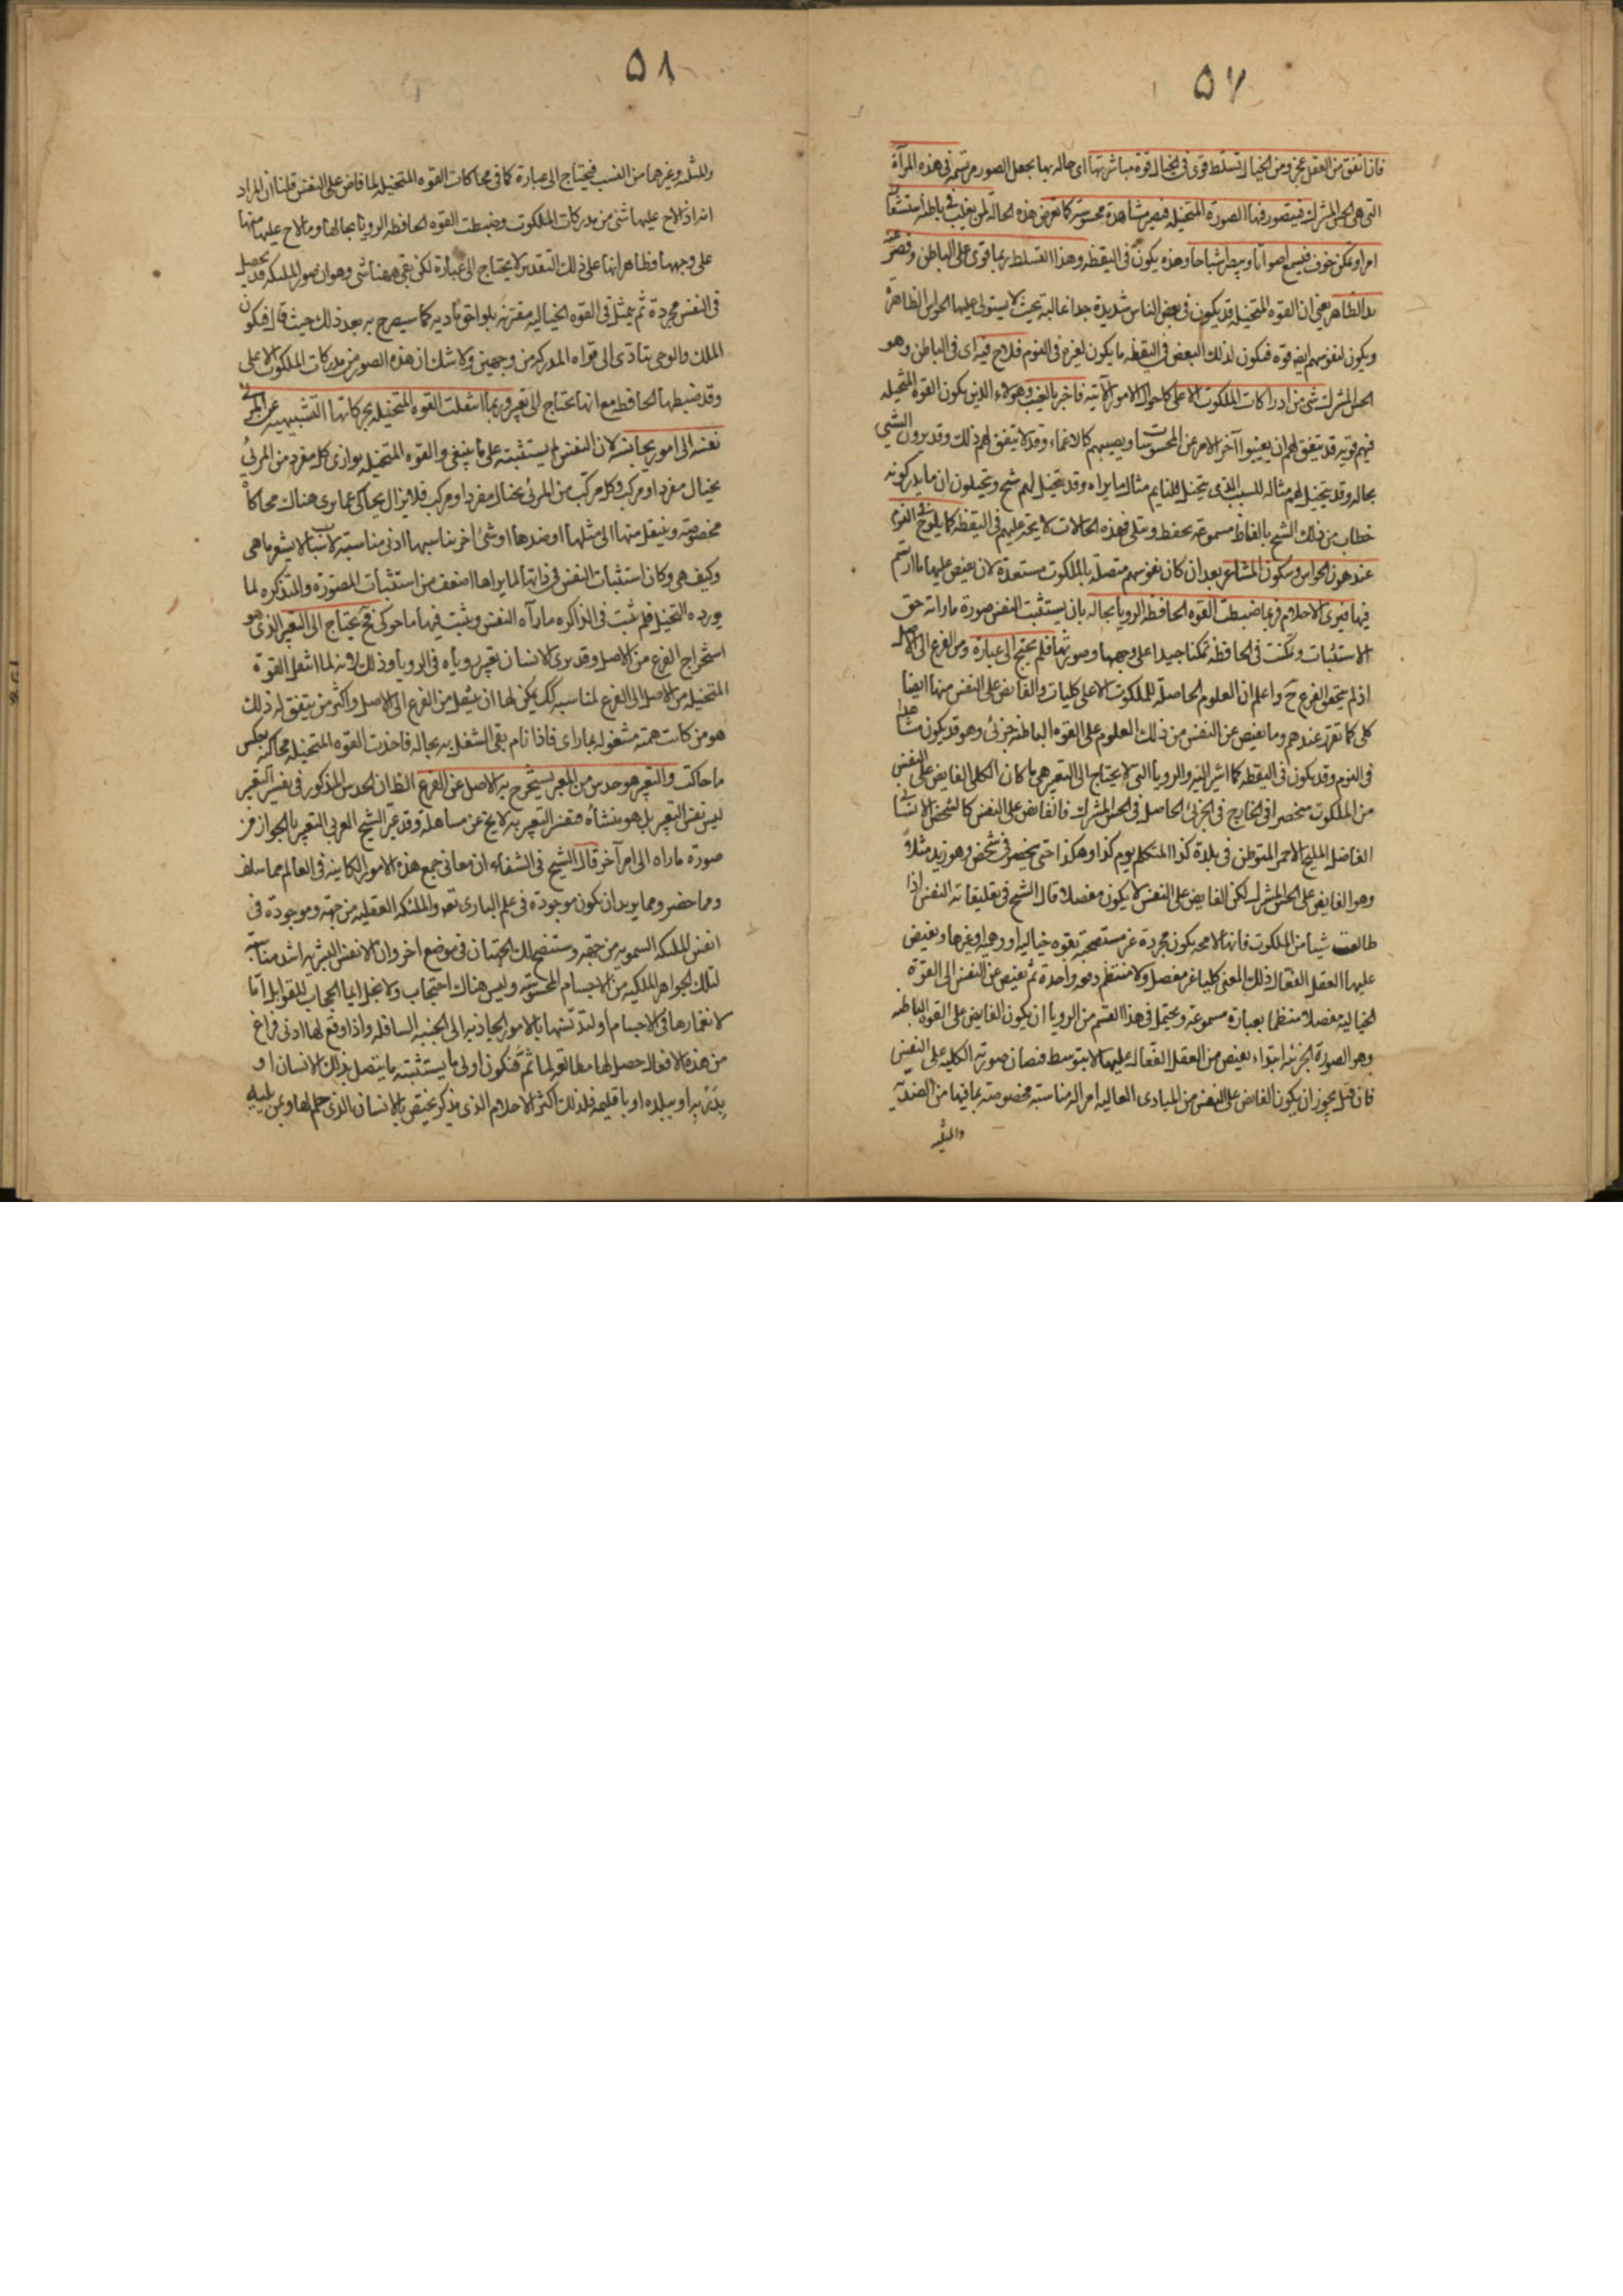 ٥٧
فان اتفق من العقل عجز ومن الخيال تسلط قوى فى الخيال قوة مباشرتها اى حاله بها يجعل الصور مرتسمة فى هذه المرآة
التى هى الحس المشترك فيتصور فيها الصورة المتخيله فيصير مشاهدة محسوسة كما يعرض هذه الحالة لمن يغلب فى باطنه استشعار
امر او تمكن خوف فيسمع اصواتا ويبصر اشباحا وهذه يكون فى اليقظه وهذا التسلط ربما قوى على الباطن وقصر عنه
يد الظاهر يعنى ان القوه المتخيله قد يكون فى بعض الناس شديدة جدا غالبة بحيث لا يستولى عليها الحواس الظاهرة
ويكون لنفوسهم ايضه قوه فيكون لذلك البعض فى اليقظه ما يكون لغيره فى النوم فلاح فيه اى فى الباطن وهو
الحس المشترك شئ من ادراكات الملكوت الاعلى كاحوال الامور الآتيه فاخبر بالغيب وهؤلاء الذين يكون القوه المتخيله
فيهم قويه قد يتفق لهم ان يغيبوا آخر الامر عن المحسوسات ويصيبهم كالاغماء وقد لا يتفق لهم ذلك وقد يرون الشئ
بحاله وقد يتخيل لهم مثاله للسبب الذى يتخيل للنايم مثال ما يراه وقد يتخيل لهم شبح ويتخيلون ان ما يدركونه
خطاب من ذلك الشبح بالفاظ مسموعه يحفظ ويتلى فهذه الحالات لا يتحد عليهم فى اليقظه كما يلوح فى النوم
عند هدون الحواس وسكون المشاعر بعد ان كان نفوسهم متصلة بالملكوت مستعدة لان يفيض عليها ما ارتسم
فيها فيرى الاحلام فربما ضبطت القوه الحافظه الرويا بحاله بان يستثبت النفس صورة ما راته حق
الاستثبات وتمكنت فى الحافظه تمكنا جيدا على وجهها وصورتها فلم يحتج الى عبارة ومن الفرع الى الاصل
اذ لم يتحقق الفرع ح واعلم ان العلوم الحاصلة للملكوت الاعلى كليات والفايض على النفس منها ايضا
كلى كما تقرر عندهم وما يفيض عن النفس من ذلك العلوم على القوه الباطنه جزئى وهو قد يكون مناما
فى النوم وقد يكون فى اليقظه كما اشير اليه والرويا التى لا يحتاج الى التعبير هى ما كان الكلى الفايض على النفس
من الملكوت منحصرا فى الخارج فى الجزئى الحاصل فى الحس المشترك فالفائض على النفس كالشخص الانسانى
الفاضل المليح الاحمر المتوطن فى بلدة كذا المتكلم يوم كذا وهكذا حتى ينحصر فى شخص وهو زيد مثلا
وهو الفايض على الحس المشترك لكن الفايض على النفس لا يكون مفصلا قال الشيخ فى تعليقاته النفس اذا
طالعت شيئا من الملكوت فانها لا محه يكون مجردة غير مستصحبة بقوه خياليه او وهميه او غيرها ويفيض
عليها العقل الفعال ذلك المعنى كليا غير مفصل ولا منتظم دفعه واحدة ثم يفيض عن النفس الى القوة
الخياليه مفصلا منتظما بعبارة مسموعه ويحتمل فى هذا القسم من الرويا ان يكون الفايض على القوه الباطنه
وهو الصورة الجزئيه ابتداء يفيض من العقل الفعال عليها لا بتوسط فيضان صورته الكليه على النفس
فان قيل يجوز ان يكون الفايض على النفس من المبادى العاليه امرا له مناسبة مخصوصته بما فيها من الضدية
والمثليه
٥٨
والمثليه وغيرهما من النسب فيحتاج الى عبارة كما فى محاكات القوه المتخيله لما فاض على النفس قلنا ان المراد
انه اذ الاح عليها شئ من مدركات الملكوت وضبطت القوه الحافظه الرويا بحالها وما لاح عليها منها
على وجهها فظاهر انها على ذلك التقدير لا يحتاج الى عبارة لكن بقى ههنا شئ وهو ان صور الملئكه قد يحصل
فى النفس مجردة ثم يتمثل فى القوه الخياليه مقترنه بلواحق ماديه كما سيصرح به بعد ذلك حيث قال فيكون
الملك والوحى يتادى الى قواه المدركه من وجهين ولا شك ان هذه الصور من مدركات الملكوت الاعلى
وقد ضبطها الحافظه مع انها يحتاج الى تعبير وربما انتقلت القوه المتخيله بحركاتها التشبيهيه عن المرئى
نفسه الى امور يجانسه لان النفس لم يستثبته على ما ينبغى والقوه المتخيله يوازى كل مفرد من المرئى
بخيال مفرد او مركب وكل مركب من المرئى بخيال مفرد او مركب فلا يزال يحاكى عما يرى هناك محاكاة
مخصوصة وينتقل منها الى مثلها او ضدها او شئ اخر يناسبها ادنى مناسبة لاسباب لا يشعر ما هى
وكيف هى وكان استثبات النفس فى ذاتها لما يراها اضعف من استثبات المصوره والمتذكره لما
يورده التخيل فلم يثبت فى الذاكره ما رآه النفس ويثبت فيها ما حوكى فح يحتاج الى التعبير الذى هو
استخراج الفرع من الاصل وقد يرى الانسان تعبير روياه فى الرويا وذلك لانه لما انتقل القوة
المتخيله من الاصل الى الفرع لمناسبه كك يمكن لها ان ينتقل من الفرع الى الاصل واكثر من يتفق له ذلك
هو من كانت همته مشغوله بما راى فاذا نام بقى الشغل به بحاله فاخذت القوه المتخيله محاكيه بعكس
ما حاكت والتعبير هو حدس من المعبر يستخرج به الاصل عن الفرع الظ ان الحدس المذكور فى تفسير التعبير
ليس نفس التعبير بل هو منشاه فتفسير التعبير به لا يخ عن مساهلة وقد عبر الشيخ العربى التعبير بالجواز من
صورة ما راه الى امر آخر قال الشيخ فى الشفاء ان معانى جمع هذه الامور الكاينه فى العالم مما سلف
ومما حضر ومما يريد ان يكون موجودة فى علم البارى تعه والملئكه العقليه من جهة وموجودة فى
انفس الملئكه السمويه من جهة وستتضح لك الجهتان فى موضع اخر وان الانفس البشريه اشد مناسبة
لتلك الجواهر الملكيه من الاجسام المحسوسه وليس هناك احتجاب ولا بخل انما الحجاب للقوابل اما
لانغمارها فى الاجسام او لتدنسها بالامور الجاذبه الى الجنبه السافله واذا وقع لها ادنى فراغ
من هذه الافعال حصل لها مطالعه لما ثم فيكون اولى ما يستثبته ما يتصل بذلك الانسان او
بذويه او ببلده او باقليمه فلذلك اكثر الاحلام الذى يذكر يختص بالانسان الذى حلم لها ومن يليه